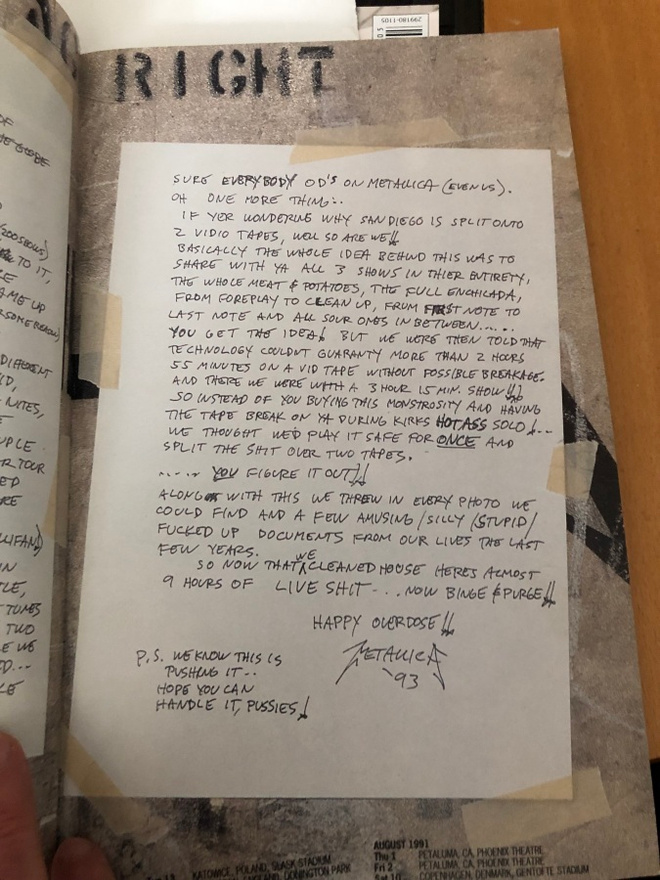 299180-1105
RIGHT
OF
GLOBE
(200 SHOWS)
TO IT,
ME UP
DIFFERENT
NITES,
UPLE
R TOUR
ED
RE
LLIFAN)
IN
TLE,
TUNES
TWO
E WE
SURE EVERYBODY OD'S ON METALLICA (EVEN US).
OH ONE MORE THING...
IF YER WONDERING WHY SAN DIEGO IS SPLIT ONTO
2 VIDIO TAPES, WELL SO ARE WE!!
BASICALLY THE WHOLE IDEA BEHIND THIS WAS TO
SHARE WITH YA ALL 3 SHOWS IN THIER ENTIRETY,
THE WHOLE MEAT & POTATOES, THE FULL ENCHILADA,
FROM FOREPLAY TO CLEAN UP, FROM FIRST NOTE TO
LAST NOTE AND ALL SOUR ONES IN BETWEEN.....
YOU GET THE IDEA! BUT WE WERE THEN TOLD THAT
TECHNOLOGY COULDNT GUARANTY MORE THAN 2 HOURS
55 MINUTES ON A VID TAPE WITHOUT POSSIBLE BREAKAGE.
AND THERE WE WERE WITH A 3 HOUR 15 MIN. SHOW!!
SO INSTEAD OF YOU BUYING THIS MONSTROSITY AND HAVING
THE TAPE BREAK ON YA DURING KIRKS HOT ASS SOLO!...
WE THOUGHT WE'D PLAY IT SAFE FOR ONCE AND
SPLIT THE SHIT OVER TWO TAPES.
..... YOU FIGURE IT OUT!!
ALONG WITH THIS WE THREW IN EVERY PHOTO WE
COULD FIND AND A FEW AMUSING/SILLY/STUPID/
FUCKED UP DOCUMENTS FROM OUR LIVES THE LAST
FEW YEARS.
SO NOW THAT WE CLEANED HOUSE HERES ALMOST
9 HOURS OF LIVE SHIT... NOW BINGE & PURGE!!
HAPPY OVERDOSE!!
METALLICA
'93
P.S. WE KNOW THIS IS
PUSHING IT..
HOPE YOU CAN
HANDLE IT, PUSSIES!
KATOWICE, POLAND, SLASK STADIUM
DONINGTON PARK
AUGUST 1991
Thu 1 PETALUMA, CA, PHOENIX THEATRE
Fri 2 PETALUMA, CA, PHOENIX THEATRE
Sat 10 COPENHAGEN, DENMARK, GENTOFTE STADIUM